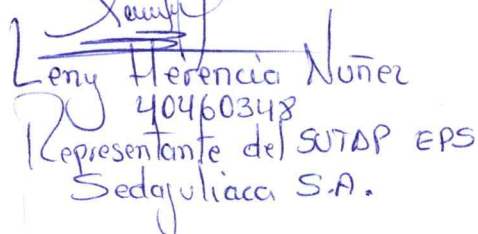 Leny Herencia Nuñez
40460348
Representante del SUTAP EPS
Sedajuliaca S.A.